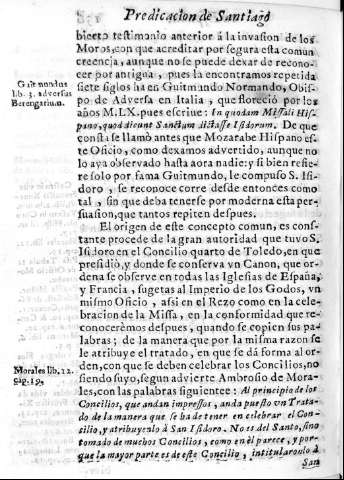 Predicacion de Santiago
bierto testimonio anterior á la invasion de los
Moros, con que acreditar por segura esta comun
creencia, aunque no se puede dexar de recono-
cer por antigua, pues la encontramos repetida
siete siglos ha en Guitmundo Normando, Obis-
po de Adversa en Italia, que floreció por los
años M.LX. pues escrive: In quodam Missali His-
pano, quod dicunt Sanctum dictasse Isidorum. De que
consta se llamò antes que Mozarabe Hispano es-
te Oficio, como dexamos advertido, aunque no
lo aya observado hasta aora nadie: y si bien refie-
re solo por fama Guitmundo, le compuso S. Isi-
doro, se reconoce corre desde entonces como
tal, sin que deba tenerse por moderna esta per-
suasion, que tantos repiten despues.
El origen de este concepto comun, es cons-
tante procede de la gran autoridad que tuvo S.
Isidoro en el Concilio quarto de Toledo, en que
presidiò, y donde se conserva vn Canon, que or-
dena se observe en todas las Iglesias de España,
y Francia, sugetas al Imperio de los Godos, vn
mismo Oficio, assi en el Rezo como en la cele-
bracion de la Missa, en la conformidad que re-
conocerèmos despues, quando se copien sus pa-
labras; de la manera que por la misma razon se
le atribuye el tratado, en que se dá forma al or-
den, con que se deben celebrar los Concilios, no
siendo suyo, segun advierte Ambrosio de Mora-
les, con las palabras siguientes: Al principio de los
Concilios, que andan impressos, anda puesto vn Trata-
do de la manera que se ha de tener en celebrar el Con-
cilio, y atribuyenlo à San Isidoro. No es del Santo, sino
tomado de muchos Concilios, como en èl parece, y por-
que la mayor parte es de este Concilio, intitularonlo à
San
Guitmundus
lib. 3. adversus
Berengarium.
Morales lib. 12.
cap. 19.